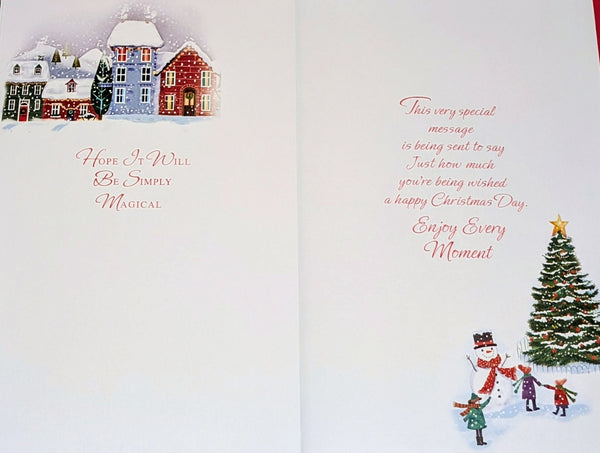 Hope It Will
Be Simply
Magical
This very special
message
is being sent to say
Just how much
you're being wished
a happy Christmas Day.
Enjoy Every
Moment